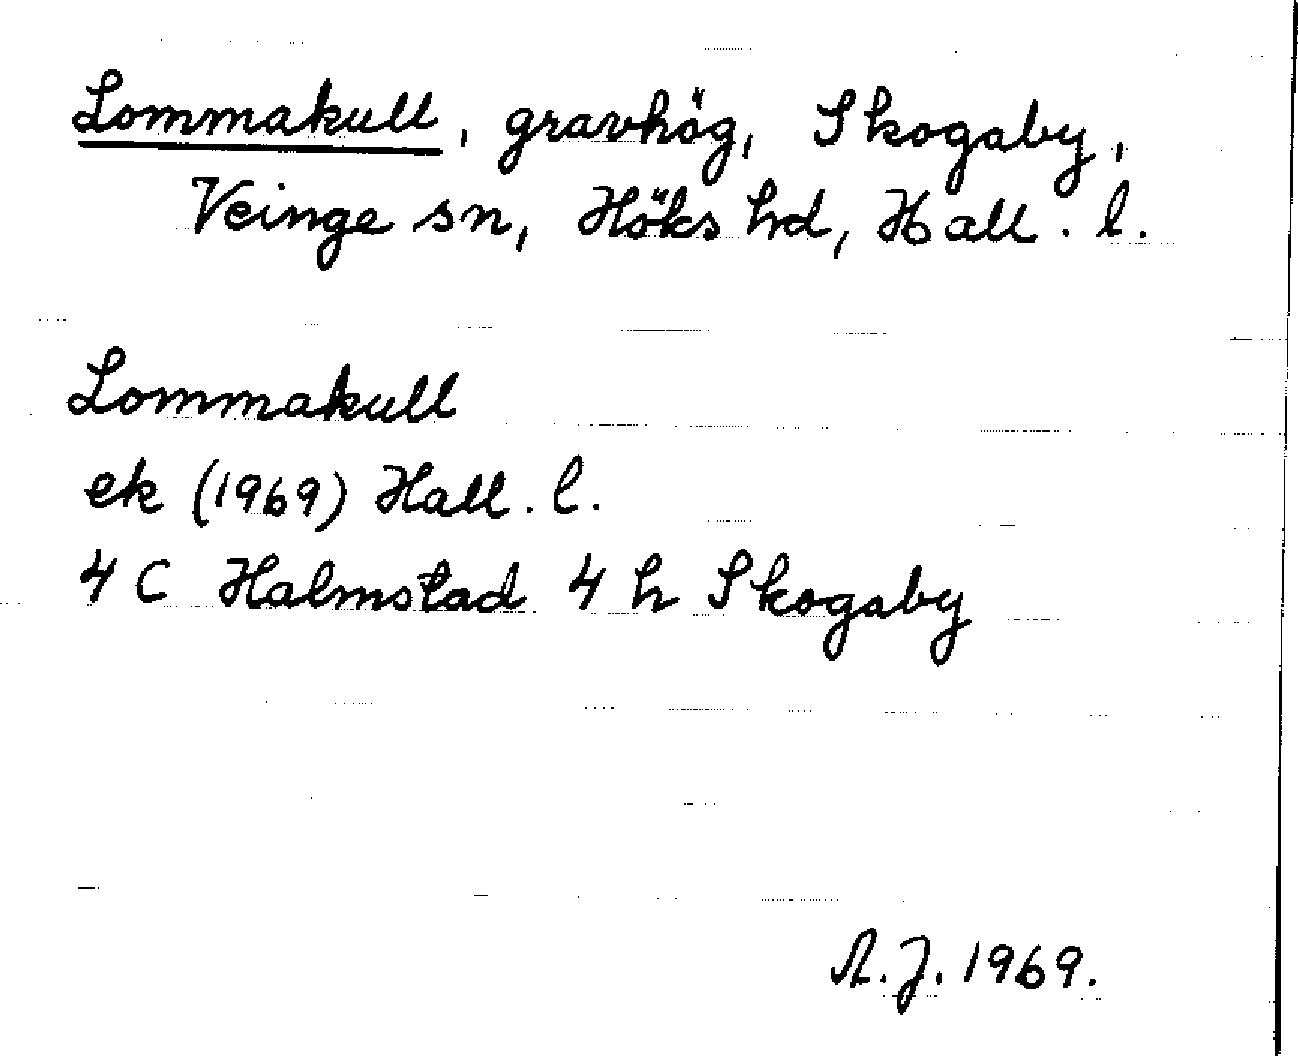 Lommakull, gravhög, Skogaby,
Veinge sn, Höks hd, Hall. l.
Lommakull
ek (1969) Hall. l.
4 C Halmstad 4 h Skogaby
A.J. 1969.